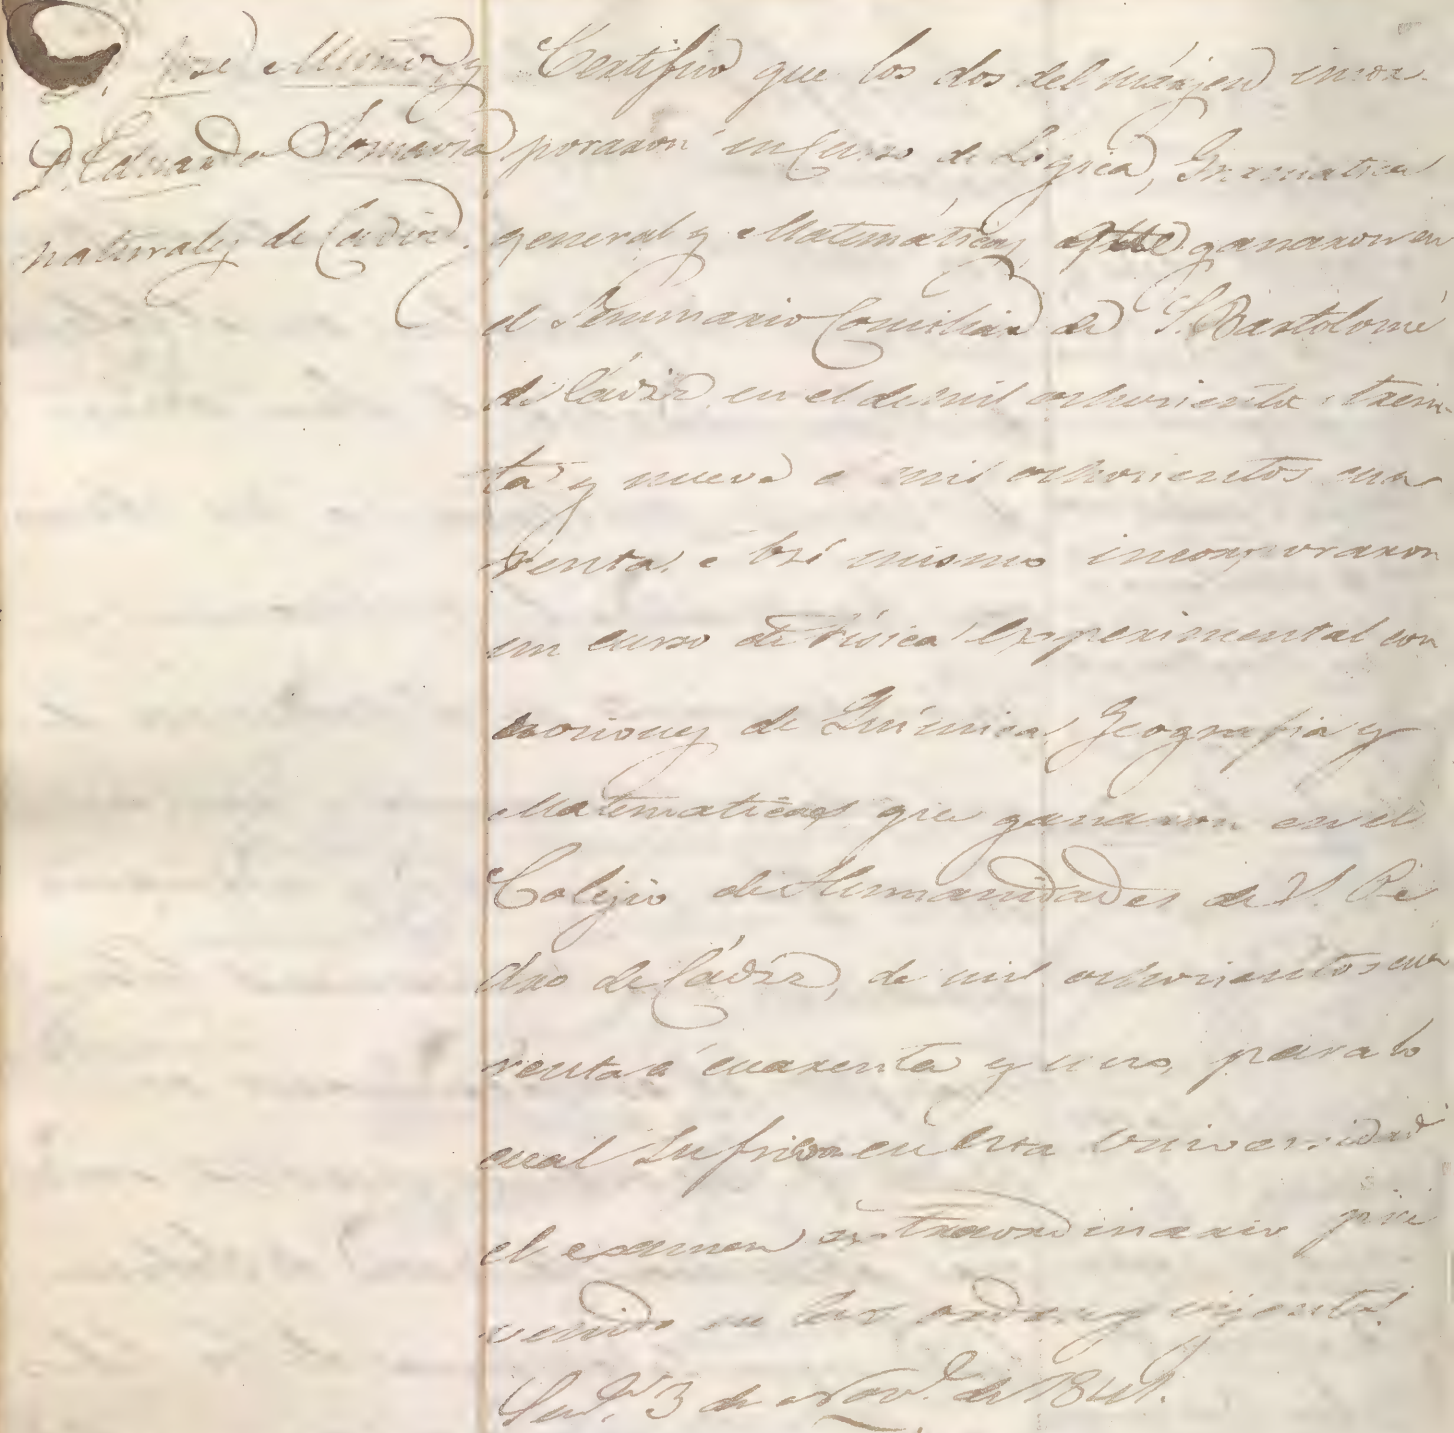 D. José Muñoz y
D. Eduardo Somavia
naturales de Cadiz.
Certifico que los dos del márjen incor-
poraron un Curso de Lógica, Gramatica
general y Matemáticas que ganaron en
el Seminario Conciliar de S. Bartolomé
de Cádiz en el de mil ochocientos trein-
ta y nueve a mil ochocientos cua
renta: Asi mismo incorporaron
un curso de Fisica Experimental con
nociones de Química Geografia y
Matematicas que ganaron en el
Colejio de Humanidades de S. Pe
dro de Cádiz, de mil ochocientos cua
renta á cuarenta y uno, para lo
cual Sufrieron en Esta Universidad
el examen extraordinario pre
venido en las ordenes vijentes.
3 de Nov.e de 1841.